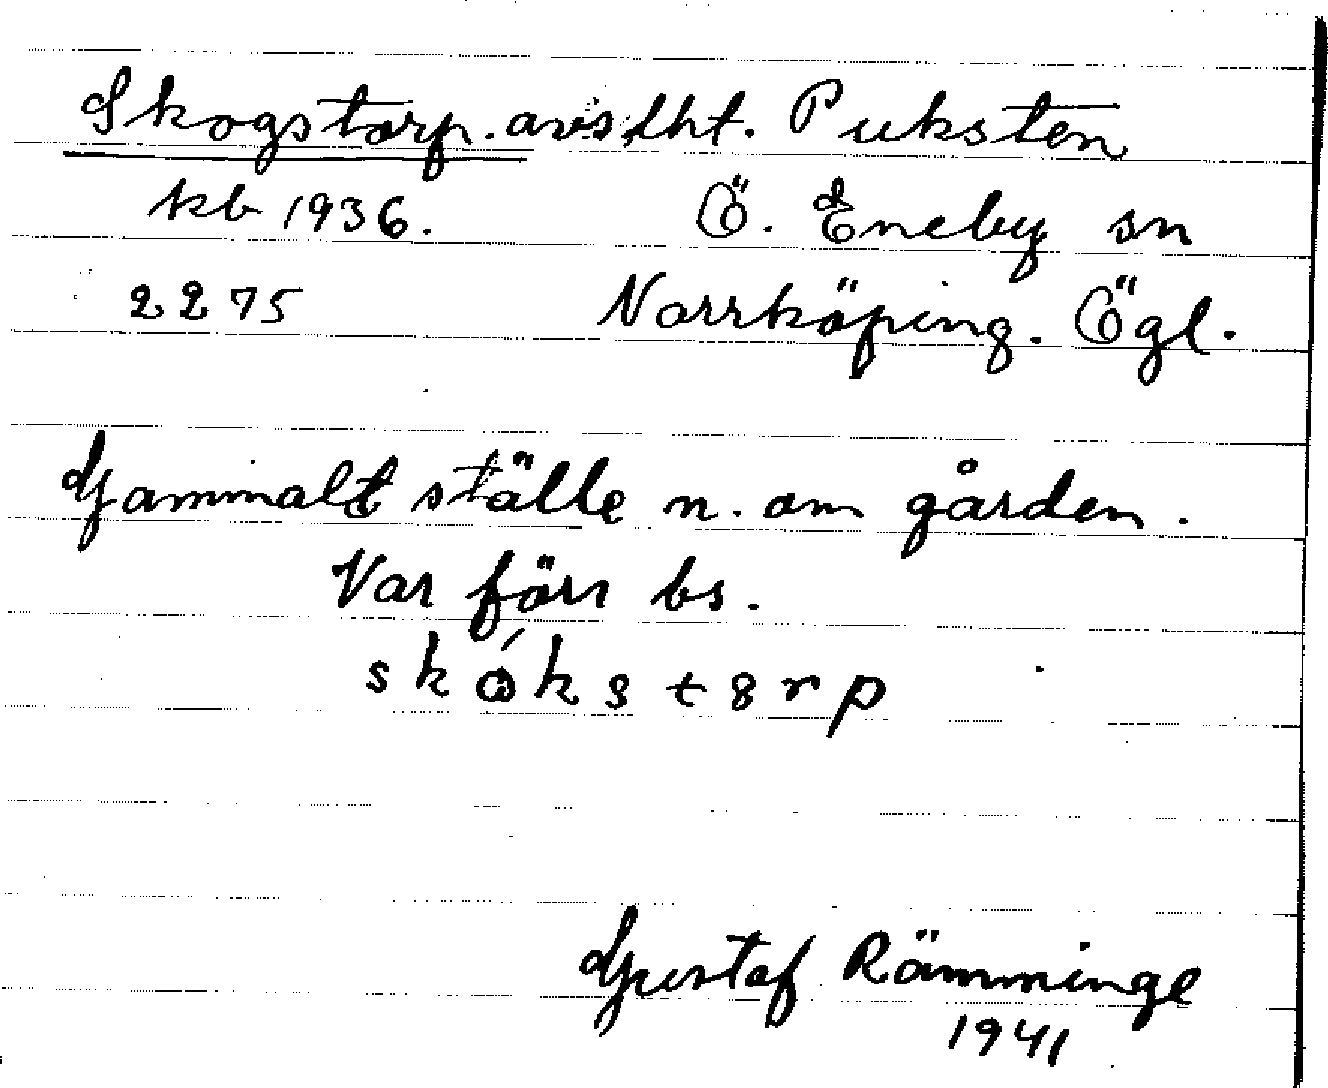 Skogstorp. avs, lht. Puksten
kb 1936. Ö. Eneby sn
2275 Norrköping. Ögl.
Gammalt ställe n. om gården.
Var förr bs.
skóks t8rp
Gustaf Rämminge
1941